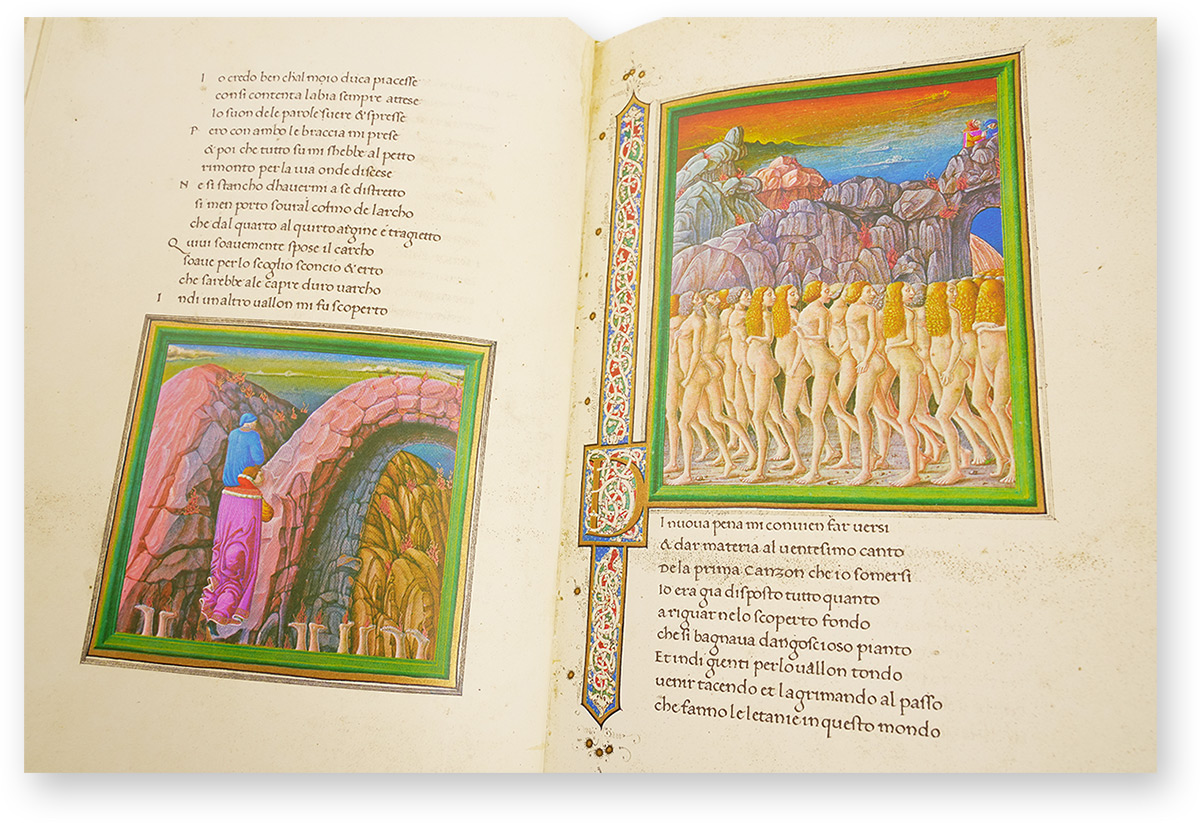 I o credo ben chal moio duca piacesse
con si contenta labia sempre attese
lo suon dele parole suere & spresse
P ero con ambo le braccia mi prese
& poi che tutto su mi shebbe al petto
rimonto per la via onde discese
N e si stancho dhavermi a se distretto
si men porto soural colmo de larcho
che dal quarto al quirto argine e tragietto
Q uivi soavemente spose il carcho
soave per lo scoglio sconcio & erto
che sarebbe ale capre duro varcho
I ndi un altro vallon mi fu scoperto
D I nuova pena mi convien far versi
& dar materia al ventesimo canto
De la prima canzon che io somersi
Io era gia disposto tutto quanto
a riguar nelo scoperto fondo
che si bagnava dangoscioso pianto
Et indi gienti per lo vallon tondo
venir tacendo et lagrimando al passo
che fanno le letanie in questo mondo